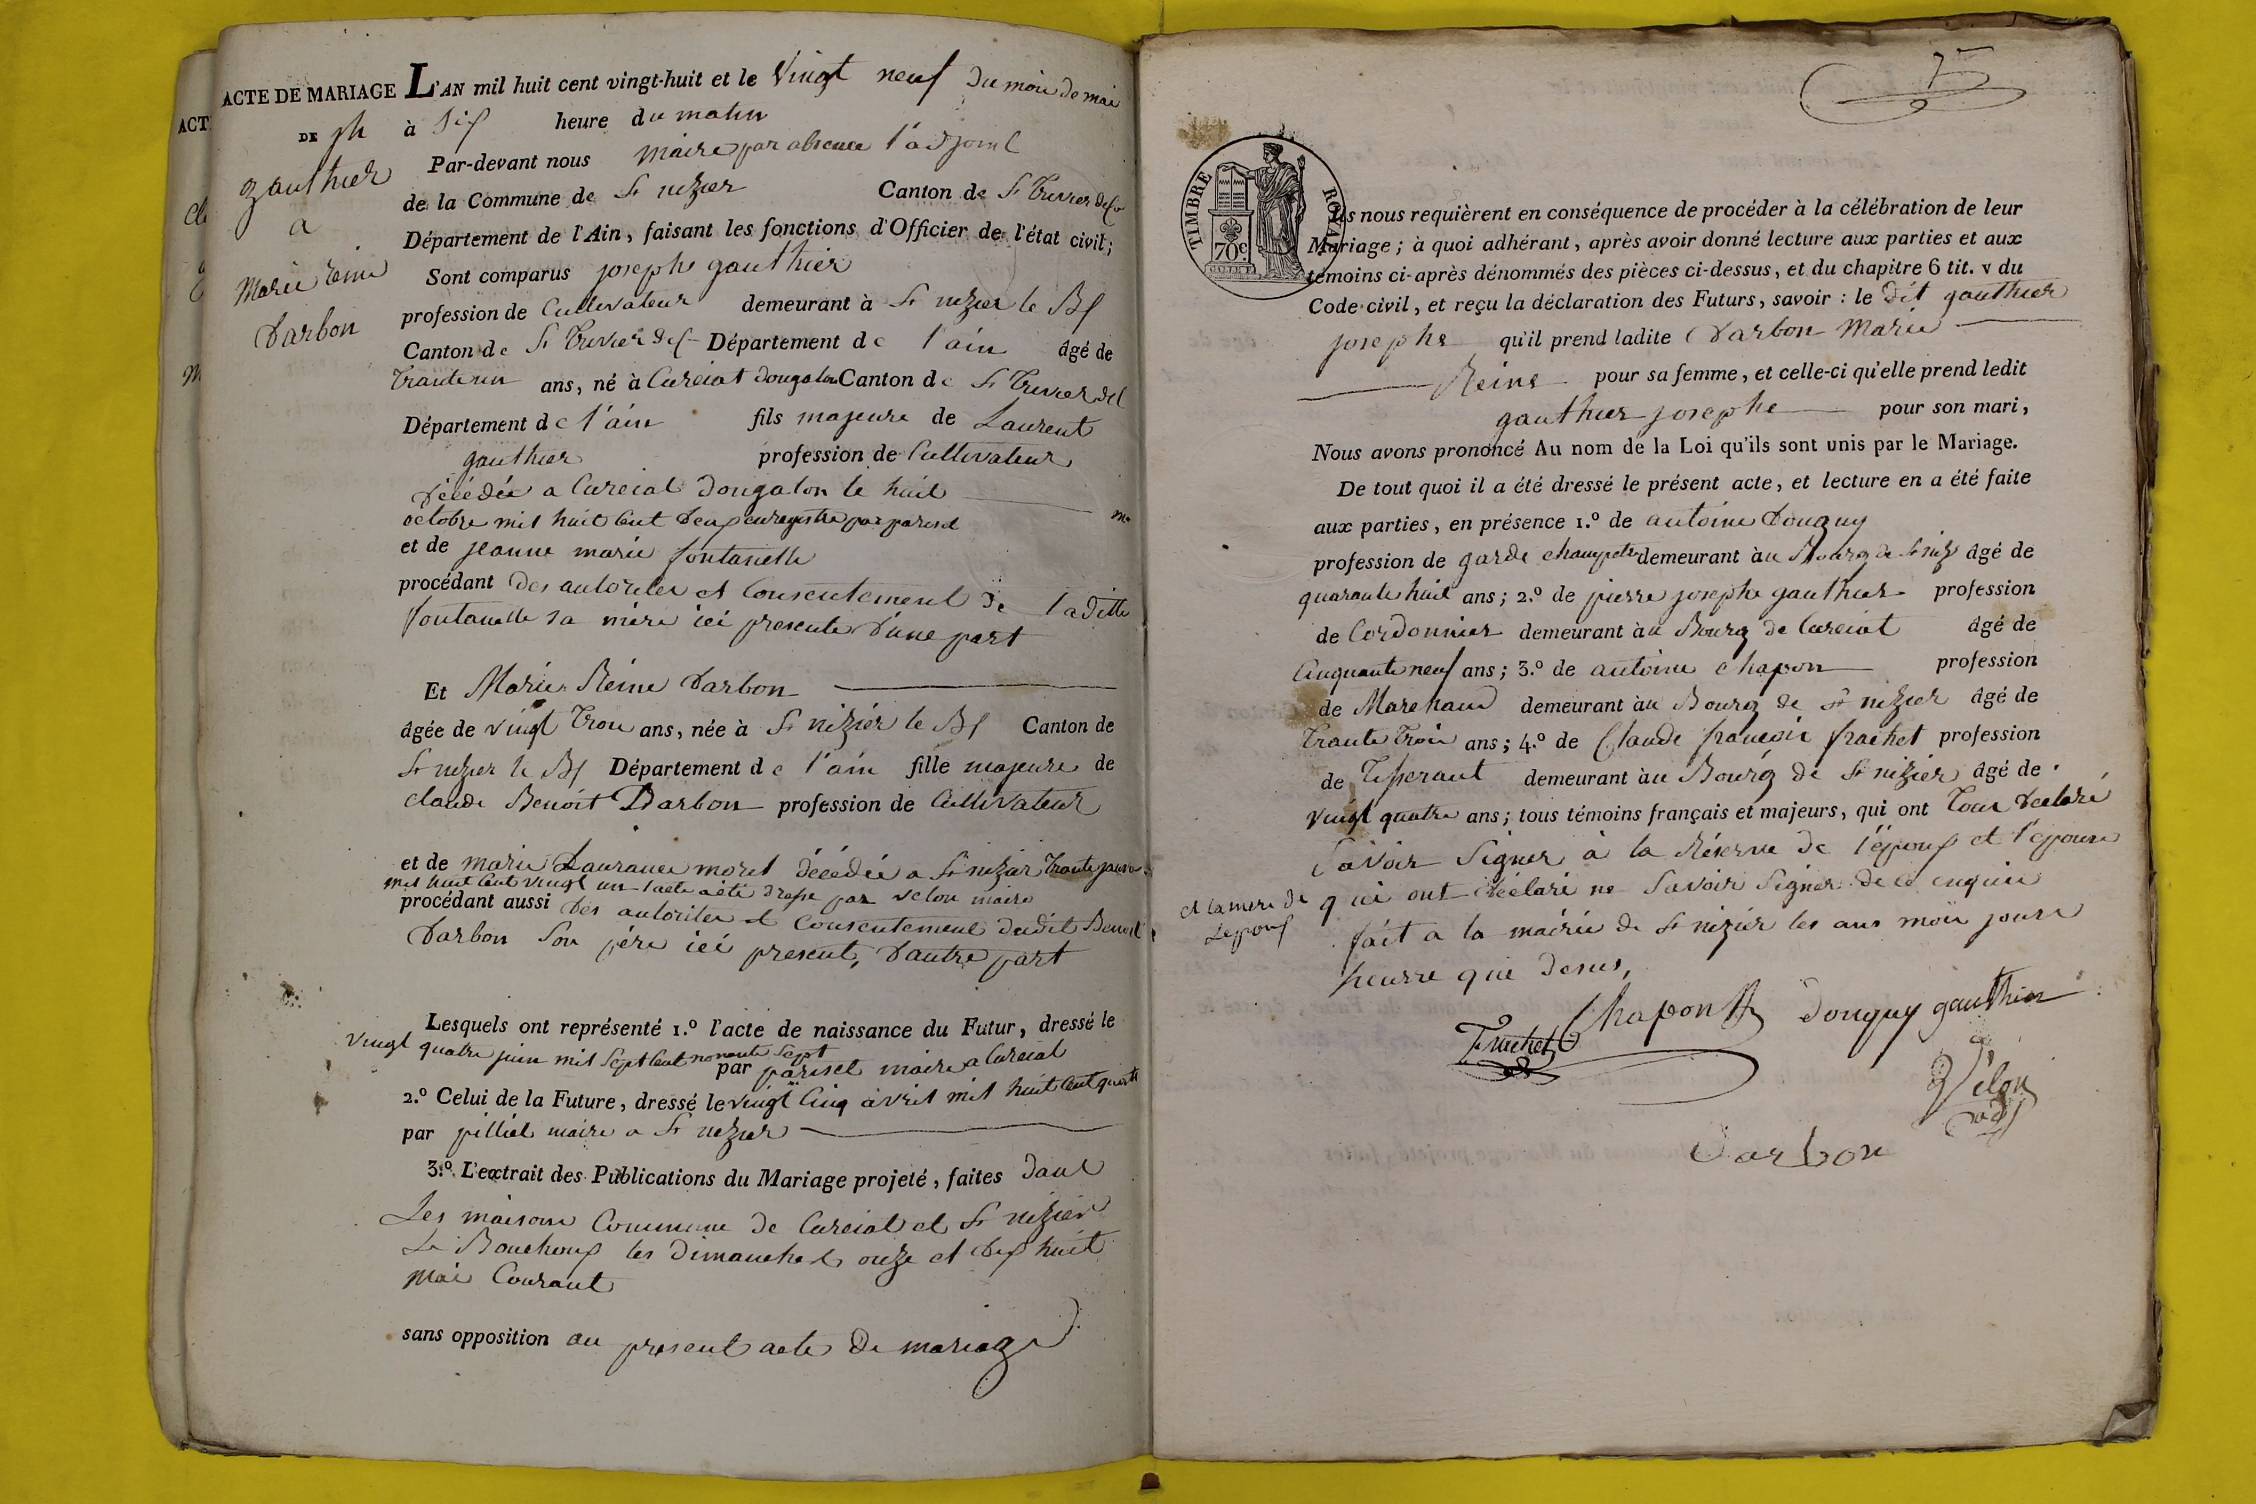 ACTE DE MARIAGE L'AN mil huit cent vingt-huit et le Vingt neuf du mois de mai
DE ph à Six heure du matin
gauthier
a
Marie reine
Darbon
Par-devant nous Maire par absence l'adjoint
de la Commune de St nizier Canton de St Trivier de Co
Département de l'Ain, faisant les fonctions d'Officier de l'état civil;
Sont comparus josephe gauthier
profession de Cultivateur demeurant à St nizier le Bx
Canton de St Trivier de C Département de l'ain âgé de
ans, né à Curciat dongalon Canton de St Trivier de C
Département de l'ain fils majeure de Laurent
gauthier profession de Cultivateur
décédée a Curciat dongalon le huit
octobre mil huit Cent Deux enregistré par parisel
et de jeanne marie fontanelle
procédant des autorites et Consentement de laditte
fontanelle sa mère ici presente D'une part
Et Marie Reine Darbon
âgée de vingt Trois ans, née à St nizier le Bx Canton de
St nizier le Bx Département de l'ain fille majeure de
claude Benoit Darbon profession de Cultivateur
et de marie Laurance morel décédée a St nizier Trante janvier
mil huit Cent vingt un l'acte a été dressé par velon maire
procédant aussi Des autorites et Consentement dudit Benoit
Darbon Son père ici present, D'autre part
Lesquels ont représenté 1.º l'acte de naissance du Futur, dressé le
vingt quatre juin mil Sept Cent nonante Sept
par parisel maire a Curciat
2.º Celui de la Future, dressé le vingt Cinq avril mil huit Cent quatre
par pilliet maire a St nizier
3.º L'extrait des Publications du Mariage projeté, faites dans
Les maisons Commune de Curciat et St nizier
Le Bouchoux les dimanches onze et Dix huit
Mai Courant
sans opposition au present acte De mariage
75
TIMBRE ROYAL
70c
Ils nous requièrent en conséquence de procéder à la célébration de leur
Mariage; à quoi adhérant, après avoir donné lecture aux parties et aux
témoins ci-après dénommés des pièces ci-dessus, et du chapitre 6 tit. v du
Code civil, et reçu la déclaration des Futurs, savoir: le dit gauthier
josephe qu'il prend ladite Darbon Marie
Reine pour sa femme, et celle-ci qu'elle prend ledit
gauthier josephe pour son mari,
Nous avons prononcé Au nom de la Loi qu'ils sont unis par le Mariage.
De tout quoi il a été dressé le présent acte, et lecture en a été faite
aux parties, en présence 1.º de antoine Donguy
profession de garde champetre demeurant àu Bourg de St niz âgé de
quarante huit ans; 2.º de pierre josephe gauthier profession
de Cordonnier demeurant àu Bourg de Curciat âgé de
Cinquante neuf ans; 3.º de antoine chapon profession
de Marechand demeurant àu Bourg de St nizier âgé de
Trante Trois ans; 4.º de Claude françois frachet profession
de Tisserant demeurant àu Bourg de St nizier âgé de
Vingt quatre ans; tous témoins français et majeurs, qui ont Tous Declaré
Savoir Signer à la Réserve de l'époux et l'epouse
et la mere de
Lepoux
qui ont déclaré ne Savoir Signer de ce enquis
fait a la mairie de St nizier les ans mois jours
heurre que desus,
Chapon Donguy gauthier
Frachet
Velon
adj
Darbon